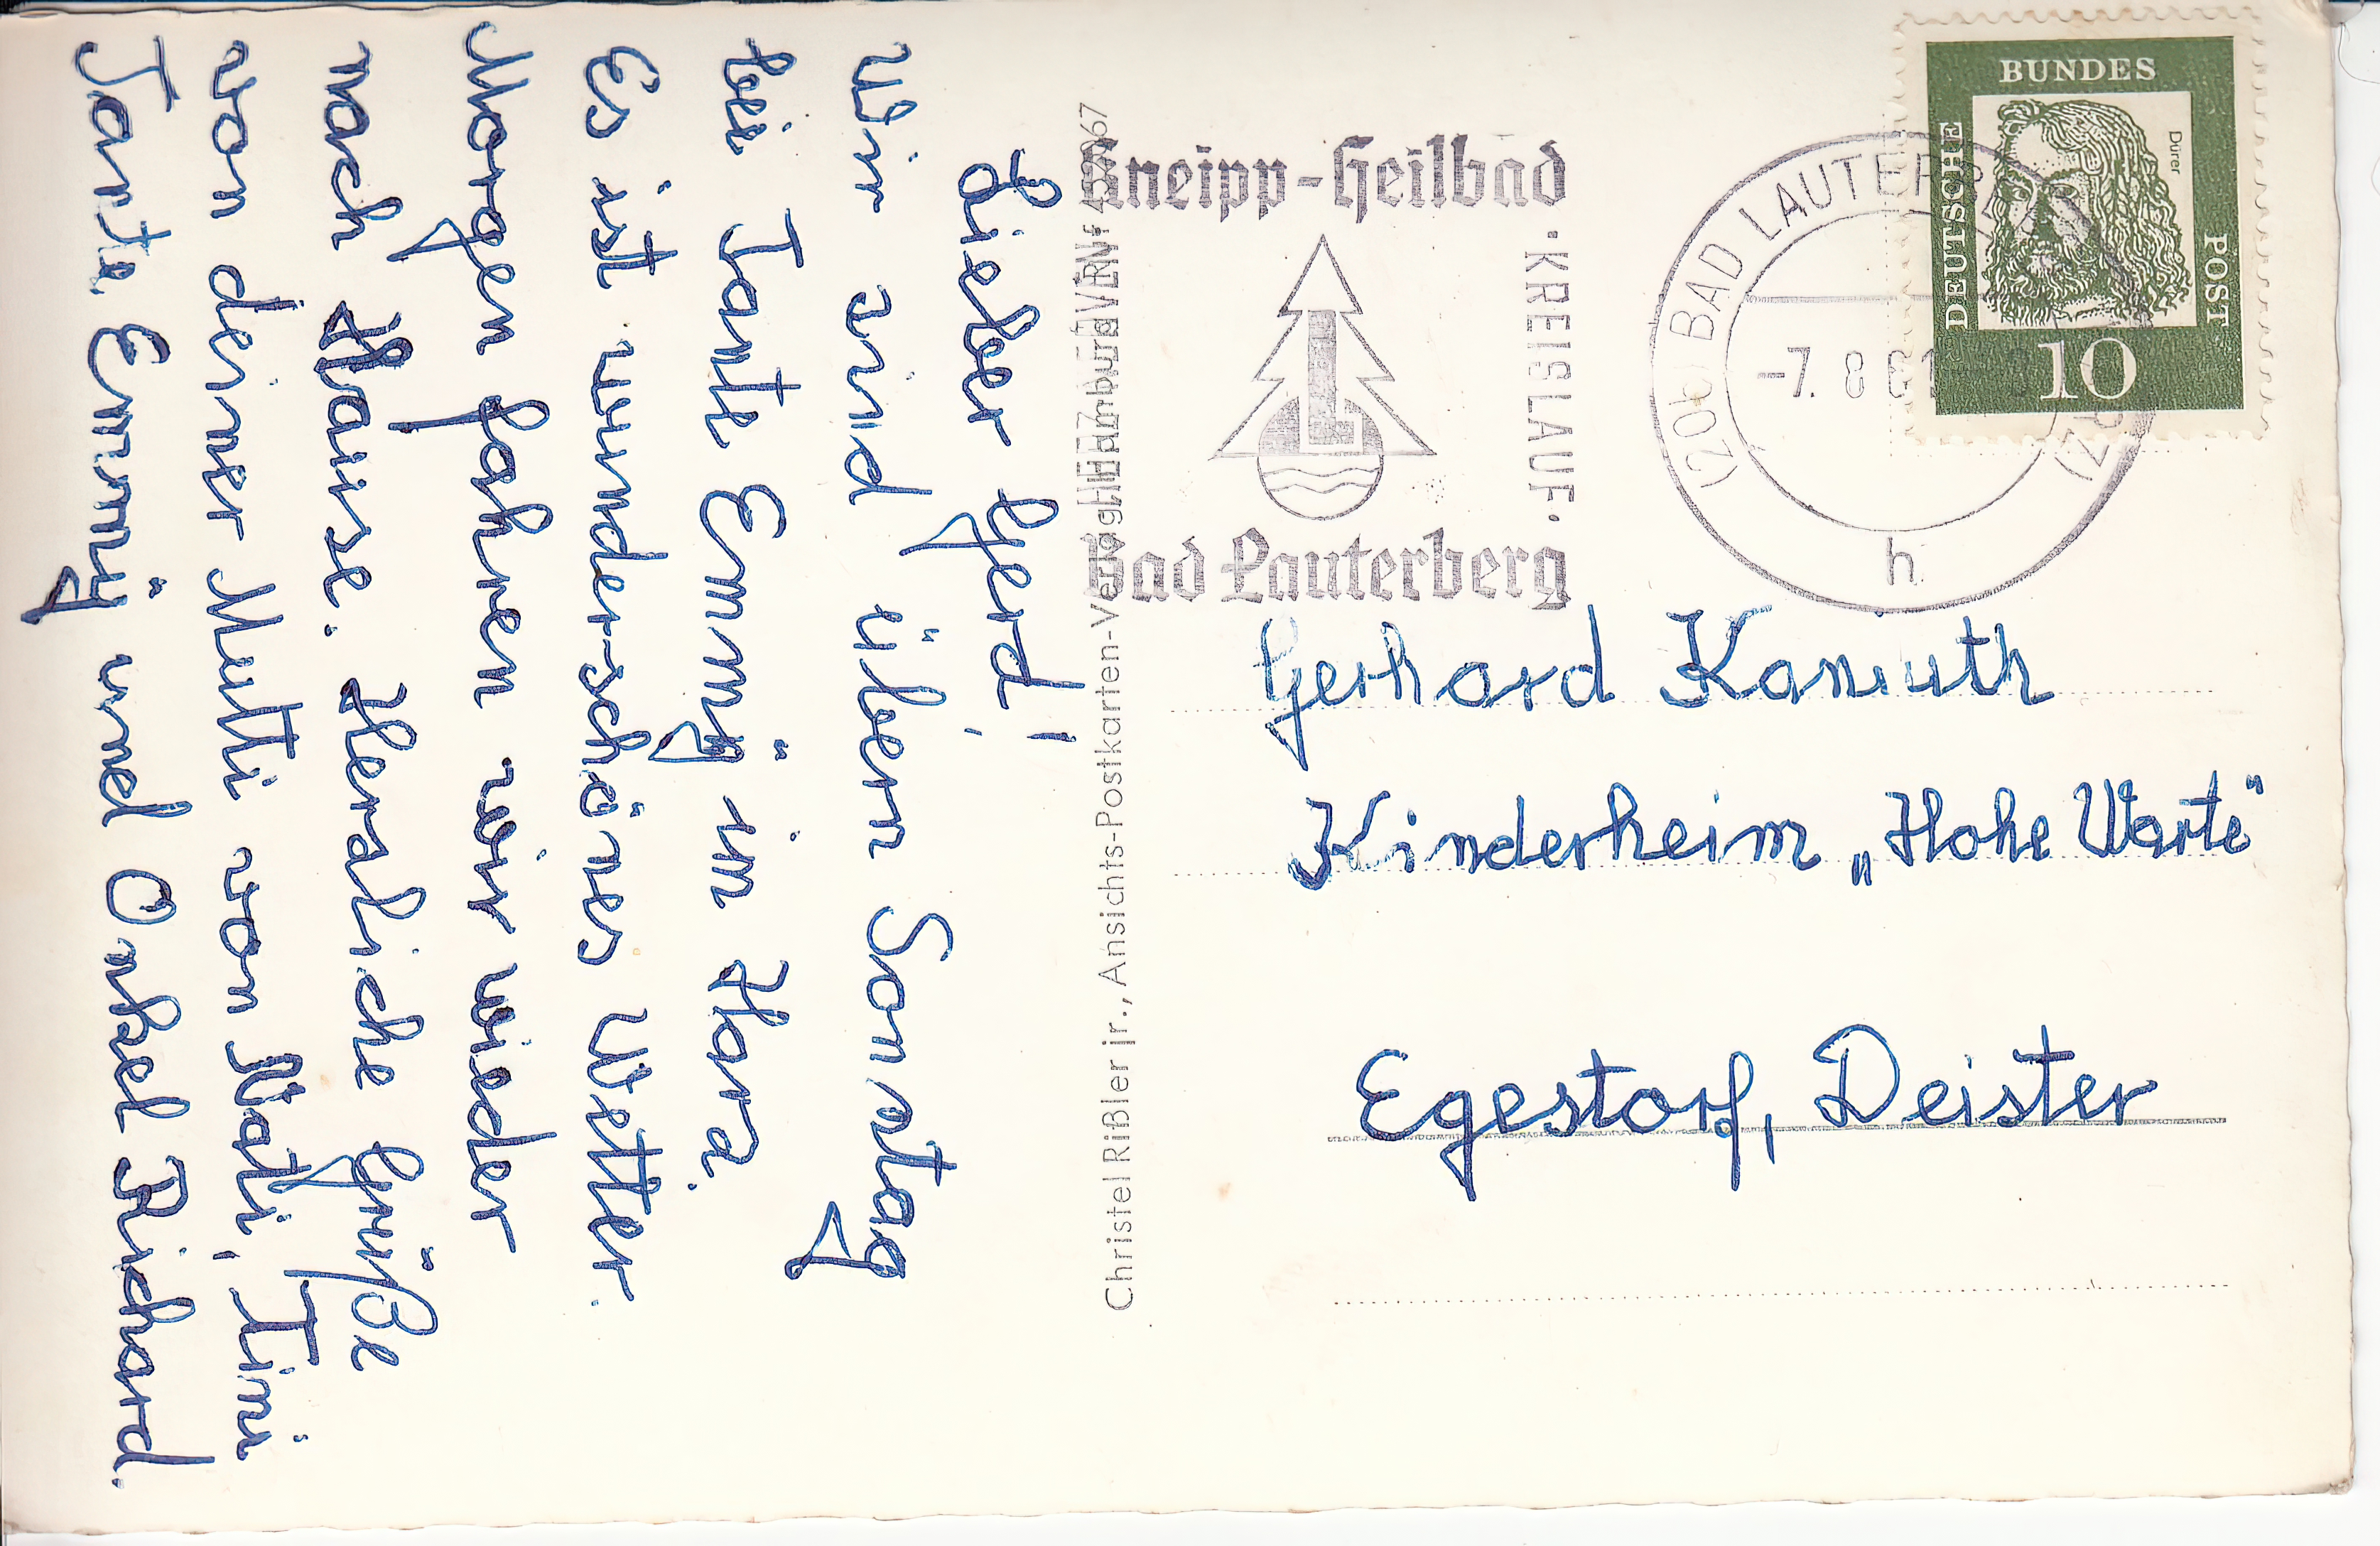 Lieber Gerd!
Wir sind übern Sonntag
bei Tante Emmÿ im Harz.
Es ist wunderschönes Wetter.
Morgen fahren wir wieder
nach Hause. Herzliche Grüße
von deiner Mutti von Mati, Timi
Tante Emmÿ und Onkel Richard.
Christel Rißler jr., Ansichts-Postkarten-Verlag
Kneipp-Heilbad
· KREISLAUF ·
L
Bad Lauterberg
(20b) BAD LAUTERBERG
-7. 8 61
h
BUNDES
DEUTSCHE
POST
Dürer
10
Gerhard Kaniuth
Kinderheim „Hohe Warte"
Egestorf, Deister